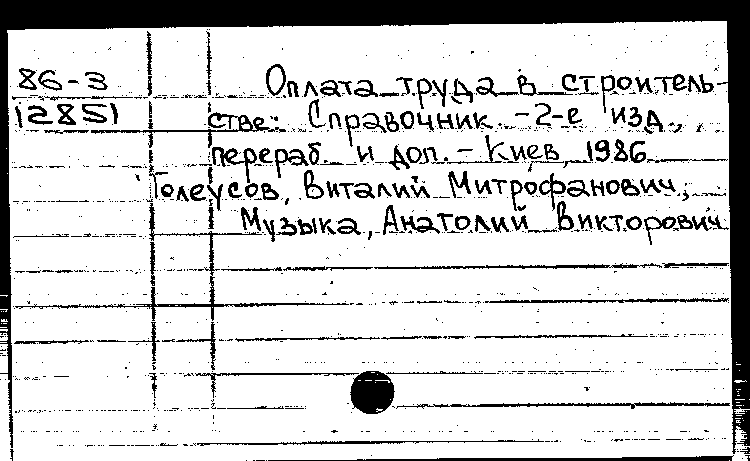 86-3
12851
Оплата труда в строитель-
стве: Справочник. -2-е изд.,
перераб. и доп. - Киев, 1986
Голеусов, Виталий Митрофанович,
Музыка, Анатолий Викторович